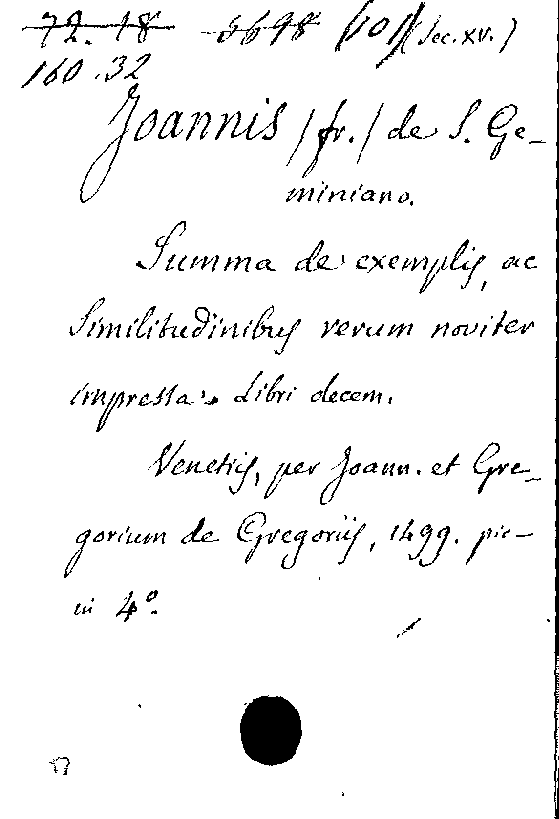 72.18 3698 (101) (Sec. XV.)
160.32
Joannis / fr. / de S. Ge-
miniano.
Summa de exemplis, ac
similitudinibus rerum noviter
impressa: Libri decem.
Venetiis, per Joann. et Gre-
gorium de Gregoriis, 1499. pic-
in 4°.